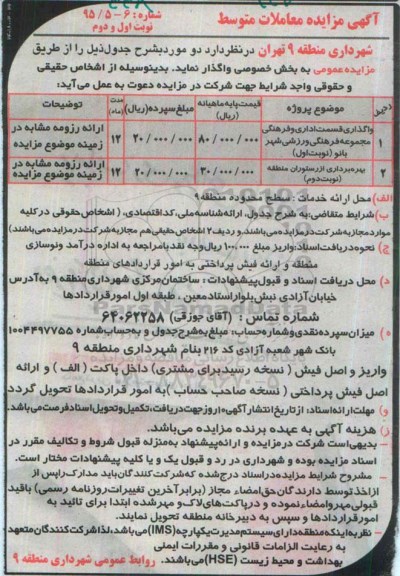 آگهی مزایده معاملات متوسط
شماره: ۶-۵/۹۵
نوبت اول و دوم
شهرداری منطقه ۹ تهران درنظردارد دو موردبشرح جدول‌ذیل را از طریق
مزایده عمومی به بخش خصوصی واگذار نماید. بدینوسیله از اشخاص حقیقی
و حقوقی واجد شرایط جهت شرکت در مزایده دعوت به عمل می‌آید:
ردیف موضوع پروژه قیمت پایه ماهیانه (ریال) مبلغ سپرده(ریال) مدت (ماه) توضیحات
۱ واگذاری قسمت اداری و فرهنگی مجموعه فرهنگی ورزشی شهر بانو (نوبت اول) ۸۰/۰۰۰/۰۰۰ ۲۰/۰۰۰/۰۰۰ ۱۲ ارائه رزومه مشابه در زمینه موضوع مزایده
۲ بهره‌برداری از رستوران منطقه (نوبت دوم) ۳۰/۰۰۰/۰۰۰ ۲۰/۰۰۰/۰۰۰ ۱۲ ارائه رزومه مشابه در زمینه موضوع مزایده
الف) محل ارائه خدمات: سطح محدوده منطقه ۹
ب) شرایط متقاضی: به شرح جدول، ارائه شناسه ملی، کد اقتصادی، (اشخاص حقوقی در کلیه
موارد مجاز به شرکت در مزایده می‌باشند و ردیف ۲ اشخاص حقیقی هم مجاز به شرکت در مزایده می‌باشند)
ج) نحوه دریافت اسناد: واریز مبلغ ۱۰۰/۰۰۰ ریال وجه نقد با مراجعه به اداره درآمد ونوسازی
منطقه و ارائه فیش پرداختی به امور قراردادهای منطقه
د) محل دریافت اسناد و قبول پیشنهادات: ساختمان مرکزی شهرداری منطقه ۹ به آدرس
خیابان آزادی نبش بلوار استاد معین . طبقه اول امور قراردادها
شماره تماس: (آقای جوزقی) ۶۴۰۶۲۲۵۸
ه) میزان سپرده نقدی و شماره حساب: مبلغ به شرح جدول و به حساب شماره ۱۰۰۴۴۹۷۷۵۵
بانک شهر شعبه آزادی کد ۲۱۶ بنام شهرداری منطقه ۹
واریز و اصل فیش (نسخه رسید برای مشتری) داخل پاکت (الف) و ارائه
اصل فیش پرداختی (نسخه صاحب حساب) به امور قراردادها تحویل گردد
و) مهلت ارائه اسناد: از تاریخ انتشار آگهی ۱۰ روز جهت دریافت، تکمیل و تحویل اسناد فرصت می‌باشد.
ز) هزینه آگهی به عهده برنده مزایده می‌باشد.
- بدیهی است شرکت در مزایده و ارائه پیشنهاد به منزله قبول شروط و تکالیف مقرر در
اسناد مزایده بوده و شهرداری در رد و قبول یک و یا کلیه پیشنهادات مختار است.
- مشروح شرایط مزایده در اسناد درج شده که شرکت کنندگان باید مدارک را پس از
اخذ توسط دارندگان حق امضاء مجاز (برابر آخرین تغییرات روزنامه رسمی) باقید
قبولی مهر و امضاء نموده و در پاکت‌های لاک و مهر شده ابتدا برای تائید به
امور قراردادها و سپس به دبیرخانه منطقه تحویل نمایند.
- نظر به اینکه منطقه دارای سیستم مدیریت یکپارچه (IMS) می‌باشد، لذا شرکت کنندگان متعهد
به رعایت الزامات قانونی و مقررات ایمنی
بهداشت و محیط زیست (HSE) می‌باشند. روابط عمومی شهرداری منطقه ۹